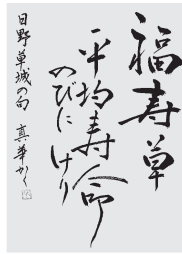 福寿草
平均寿命
のびにけり
日野草城の句 真華かく